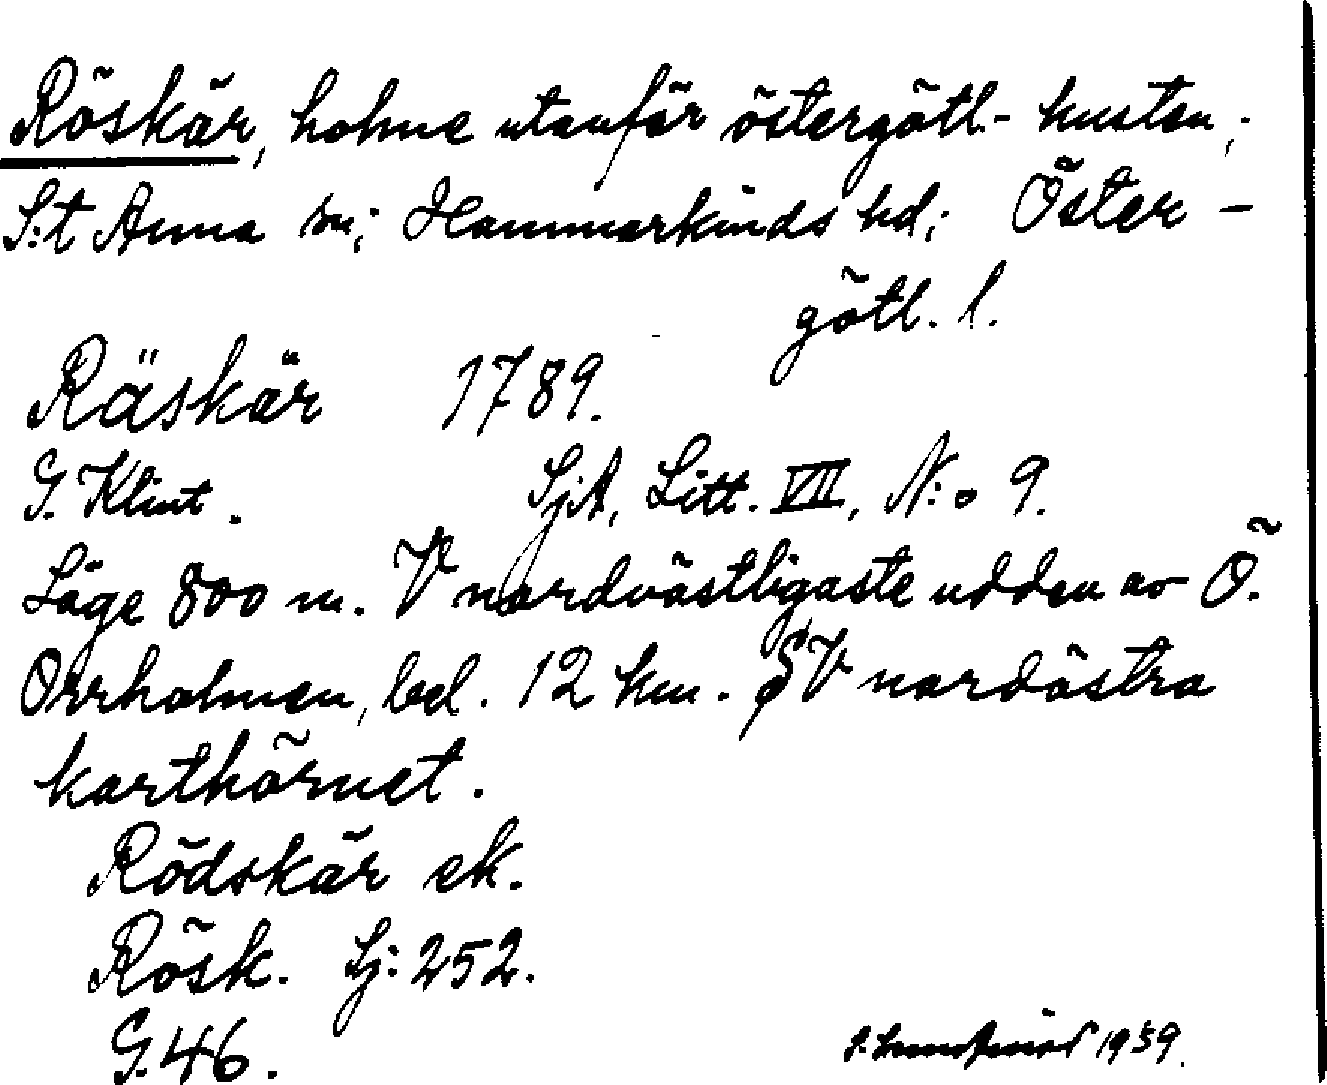 Röskär, holme utanför östergötl.- kusten;
S:t Anna sn; Hammarkinds hd; Öster-
götl. l.
Räskär 1789.
G. Klint. SjA, Litt. VII, N:o 9.
Läge 800 m. V nordvästligaste udden av Ö.
Orrholmen, bel. 12 km. SV nordöstra
karthörnet.
Rödskär ek.
Rösk. Sj: 252.
G. 46.
1939.